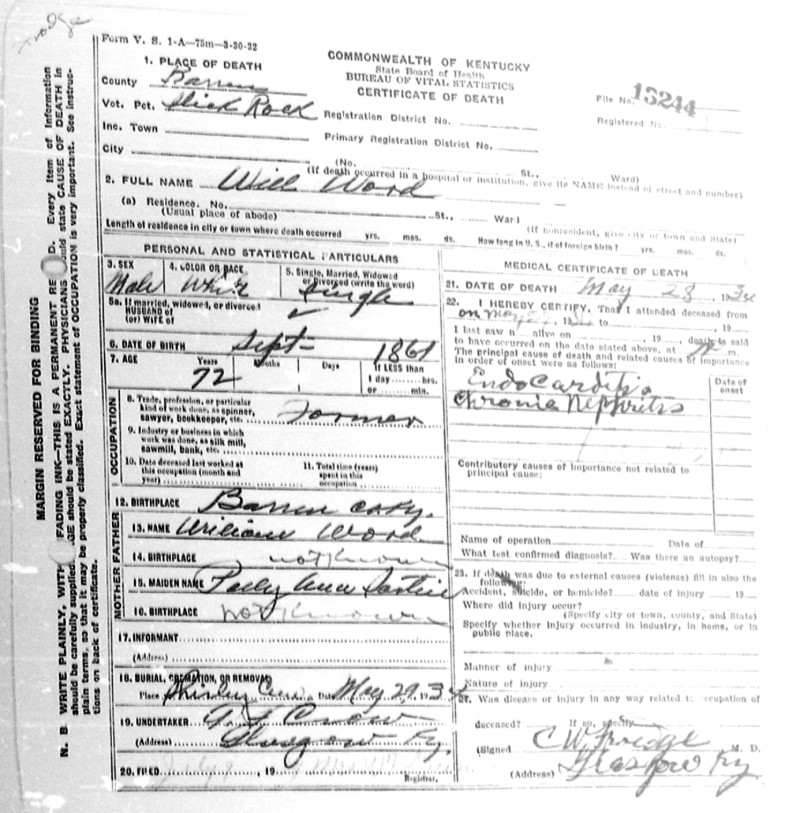 Form V. S. 1-A—75m—3-30-32
COMMONWEALTH OF KENTUCKY
State Board of Health
BUREAU OF VITAL STATISTICS
CERTIFICATE OF DEATH
File No. 13244
Registered N
1. PLACE OF DEATH
County Barren
Vot. Pct. Slick Rock
Inc. Town
City
Registration District No.
Primary Registration District No.
(No. St., Ward)
(If death occurred in a hospital or institution, give its NAME instead of street and number)
2. FULL NAME Will Word
(a) Residence. No. St., Ward
(Usual place of abode)
(If nonresident, give city or town and State)
Length of residence in city or town where death occurred yrs. mos. ds. How long in U. S., if of foreign birth? yrs. mos. ds.
PERSONAL AND STATISTICAL PARTICULARS
3. SEX
Male
4. COLOR OR RACE
White
5. Single, Married, Widowed
or Divorced (write the word)
Single
5a. If married, widowed, or divorced
HUSBAND of
(or) WIFE of
6. DATE OF BIRTH Sept 1861
7. AGE Years Months Days If LESS than
72
1 day hrs.
or min.
OCCUPATION
8. Trade, profession, or particular
kind of work done, as spinner,
sawyer, bookkeeper, etc. Farmer
9. Industry or business in which
work was done, as silk mill,
sawmill, bank, etc.
10. Date deceased last worked at
this occupation (month and
year)
11. Total time (years)
spent in this
occupation
12. BIRTHPLACE Barren
FATHER
13. NAME William Word
14. BIRTHPLACE not Known
MOTHER
15. MAIDEN NAME Ann
16. BIRTHPLACE not Known
17. INFORMANT
(Address)
18. BURIAL, CREMATION, OR REMOVAL
Place Shirley Date May 29, 1934
19. UNDERTAKER Crow
(Address) Glasgow Ky.
20. FILED , 19
Registrar.
MEDICAL CERTIFICATE OF DEATH
21. DATE OF DEATH May 28, 1934
22. I HEREBY CERTIFY, That I attended deceased from
on May , 19 to , 19
I last saw h alive on , 19 , death is said
to have occurred on the date stated above, at m.
The principal cause of death and related causes of importance
in order of onset were as follows:
Date of
onset
Endocarditis
Chronic Nephritis
Contributory causes of importance not related to
principal cause:
Name of operation Date of
What test confirmed diagnosis? Was there an autopsy?
23. If death was due to external causes (violence) fill in also the
following:
Accident, suicide, or homicide? date of injury 19
Where did injury occur?
(Specify city or town, county, and State)
Specify whether injury occurred in industry, in home, or in
public place.
Manner of injury
Nature of injury
24. Was disease or injury in any way related to ccupation of
deceased? If so, specify
(Signed C W Froedge M. D.
(Address) Glasgow Ky
MARGIN RESERVED FOR BINDING
N. B. WRITE PLAINLY, WITH FADING INK—THIS IS A PERMANENT RE D. Every item of information
should be carefully supplied. AGE should be stated EXACTLY. PHYSICIANS ould state CAUSE OF DEATH in
plain terms, so that it may be properly classified. Exact statement of OCCUPATION is very important. See instruc-
tions on back of certificate.